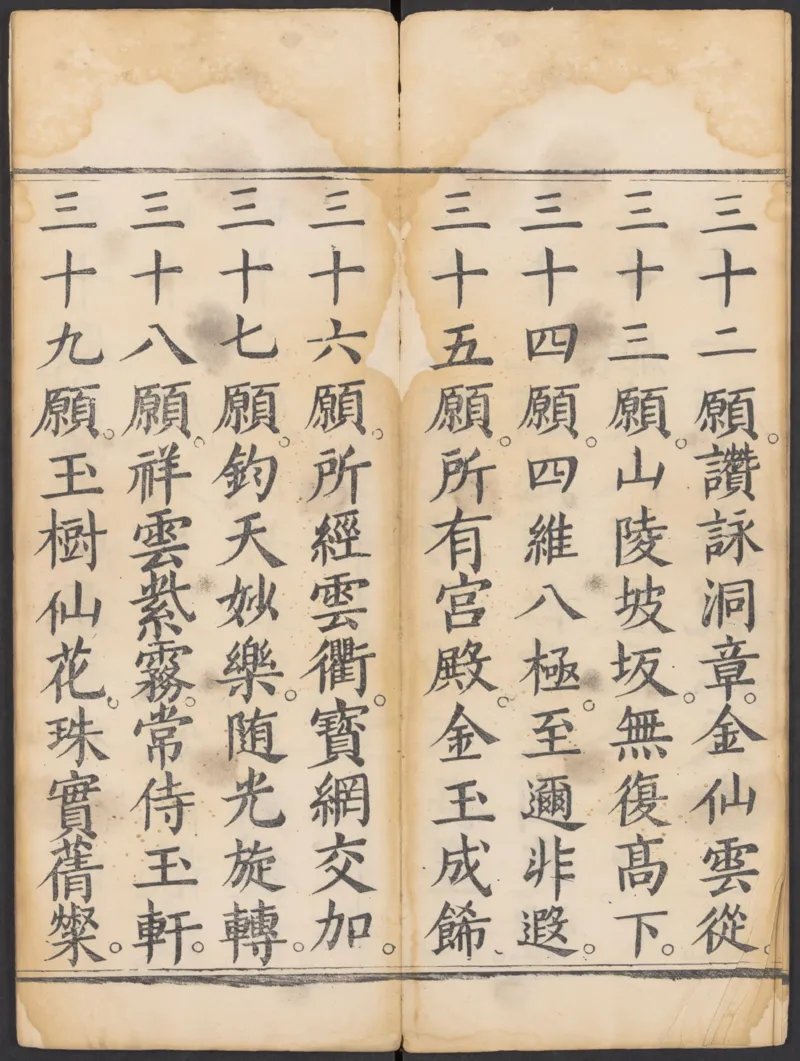 三十二願。讚詠洞章。金仙雲從。
三十三願。山陵坡坂。無復髙下。
三十四願。四維八極。至邇非遐。
三十五願。所有宫殿。金玉成餙。
三十六願。所經雲衢。寳網交加。
三十七願。鈞天妙樂。随光旋轉。
三十八願。祥雲紫霧。常侍玉軒。
三十九願。玉樹仙花。珠實蒨燦。